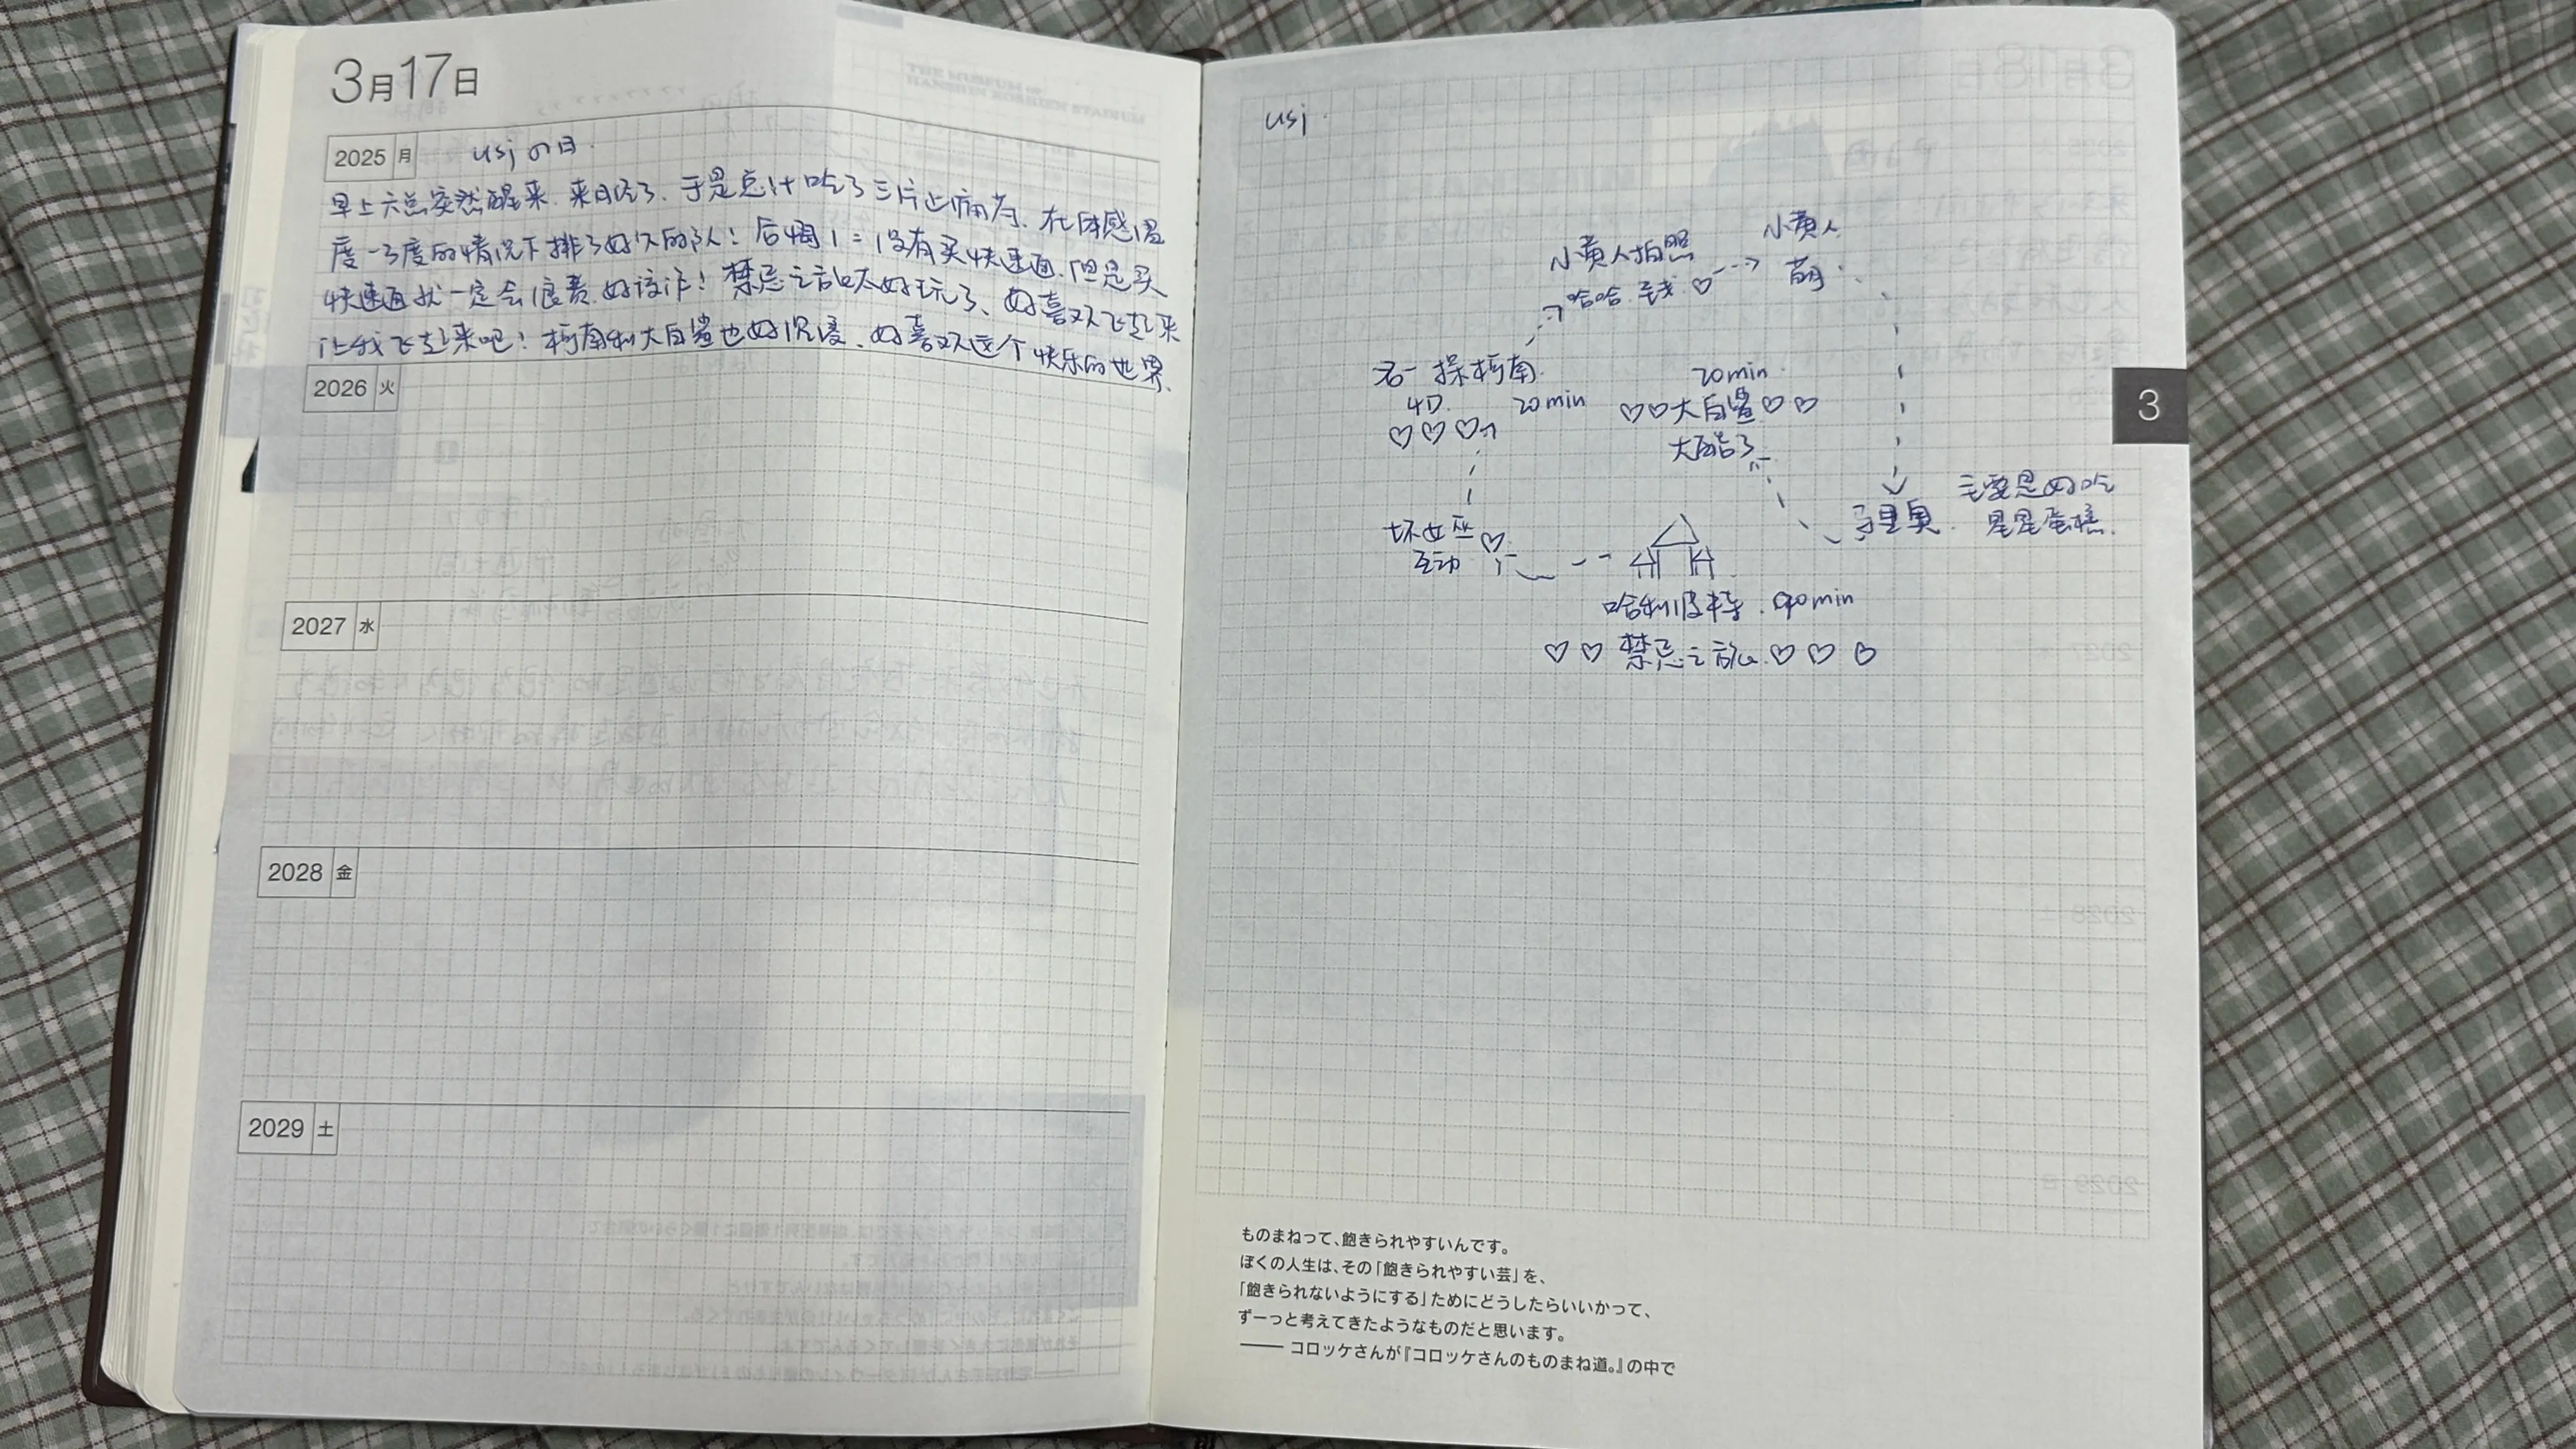 3月17日
2025 月 usjの日.
早上六点突然醒来.来月经了、于是总计吃了三片止痛药.在体感温
度一3度的情况下排了好久的队!后悔1=1没有买快速通.但是买
快速通就一定会浪费.好诡诈!禁忌之旅太好玩了、好喜欢飞起来
让我飞起来吧!柯南和大白鲨也好沉浸、好喜欢这个快乐的世界.
2026 火
2027 水
2028 金
2029 土
usj.
小黄人
小黄人拍照
萌
哈哈.钱.♡
柯南.
4D. 20min
♡♡♡
20min.
♡♡大白鲨♡♡
太酷了
主要是好吃
马里奥. 星星蛋糕.
坏女巫♡
互动
哈利波特.90min
♡♡禁忌之旅.♡♡♡
3
ものまねって、飽きられやすいんです。
ぼくの人生は、その「飽きられやすい芸」を、
「飽きられないようにする」ためにどうしたらいいかって、
ずーっと考えてきたようなものだと思います。
── コロッケさんが『コロッケさんのものまね道。』の中で